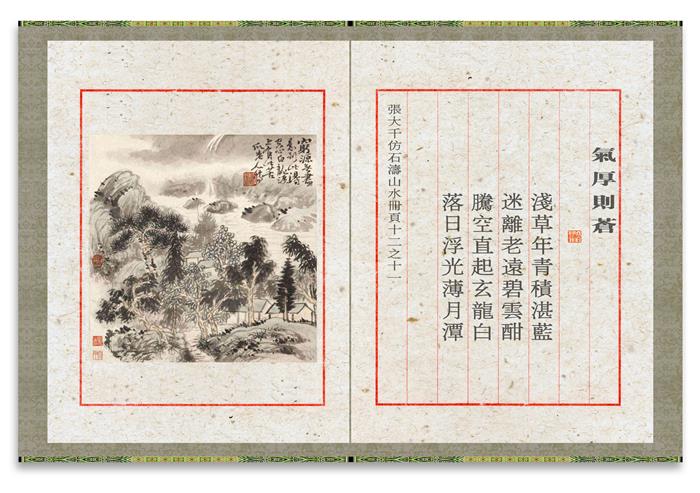 氣厚則蒼
淺草年青積湛藍
迷離老遠碧雲酣
騰空直起玄龍白
落日浮光薄月潭
張大千仿石濤山水冊頁十二之十一